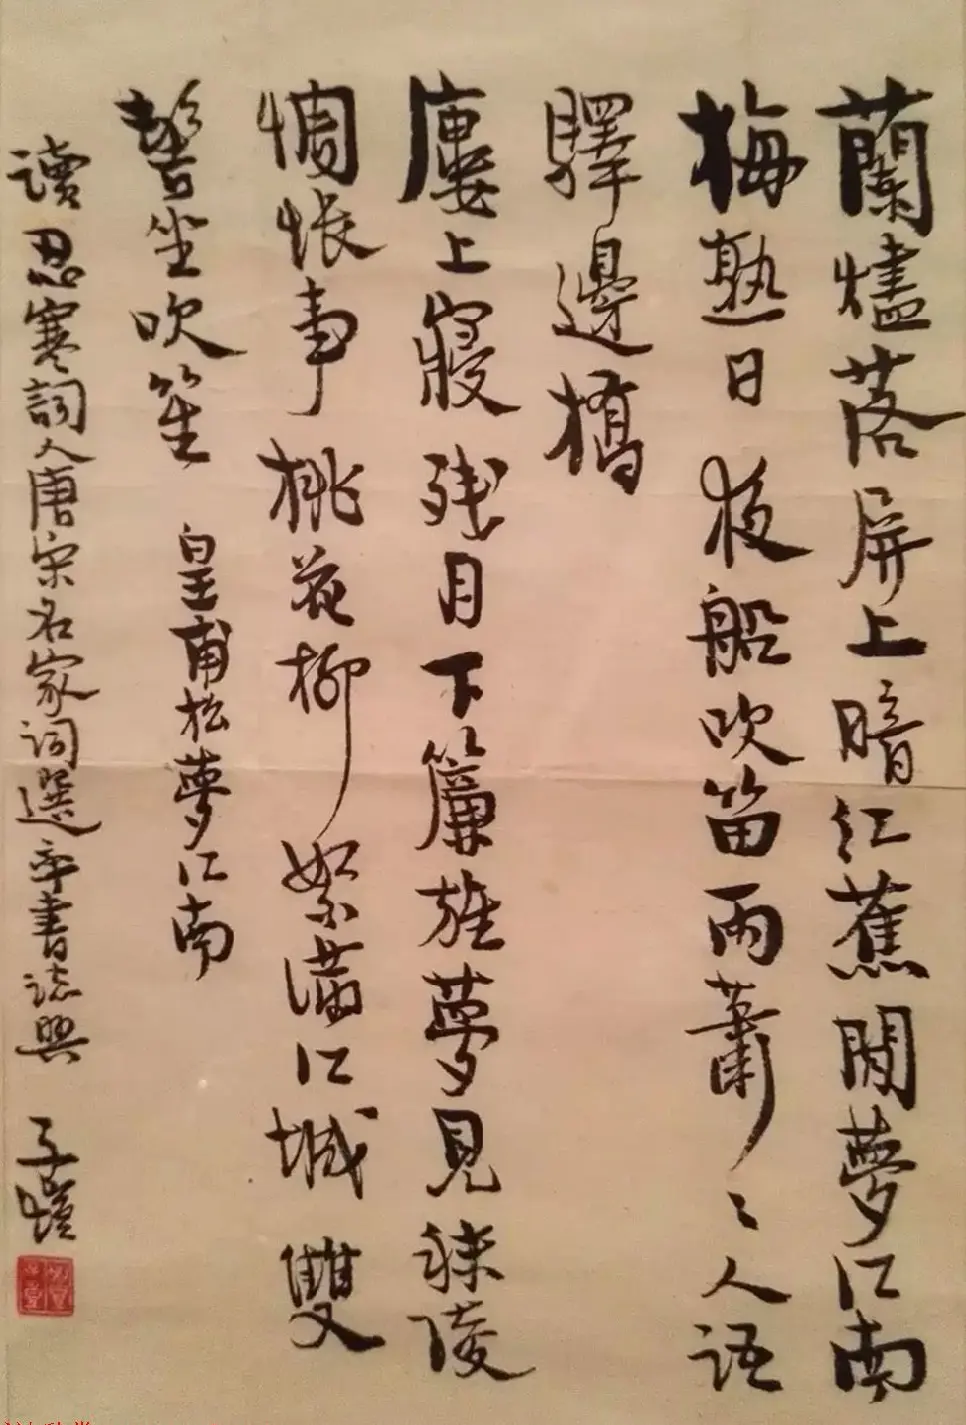 蘭燼落屏上暗紅蕉閒夢江南
梅熟日夜船吹笛雨蕭〻人語
驛邊橋
廔上寢殘月下簾旌夢見秣陵
惆悵事桃花柳絮滿江城雙
髻坐吹笙 皇甫松夢江南
讀忍寒詞人唐宋名家詞選率書誌興 子愷